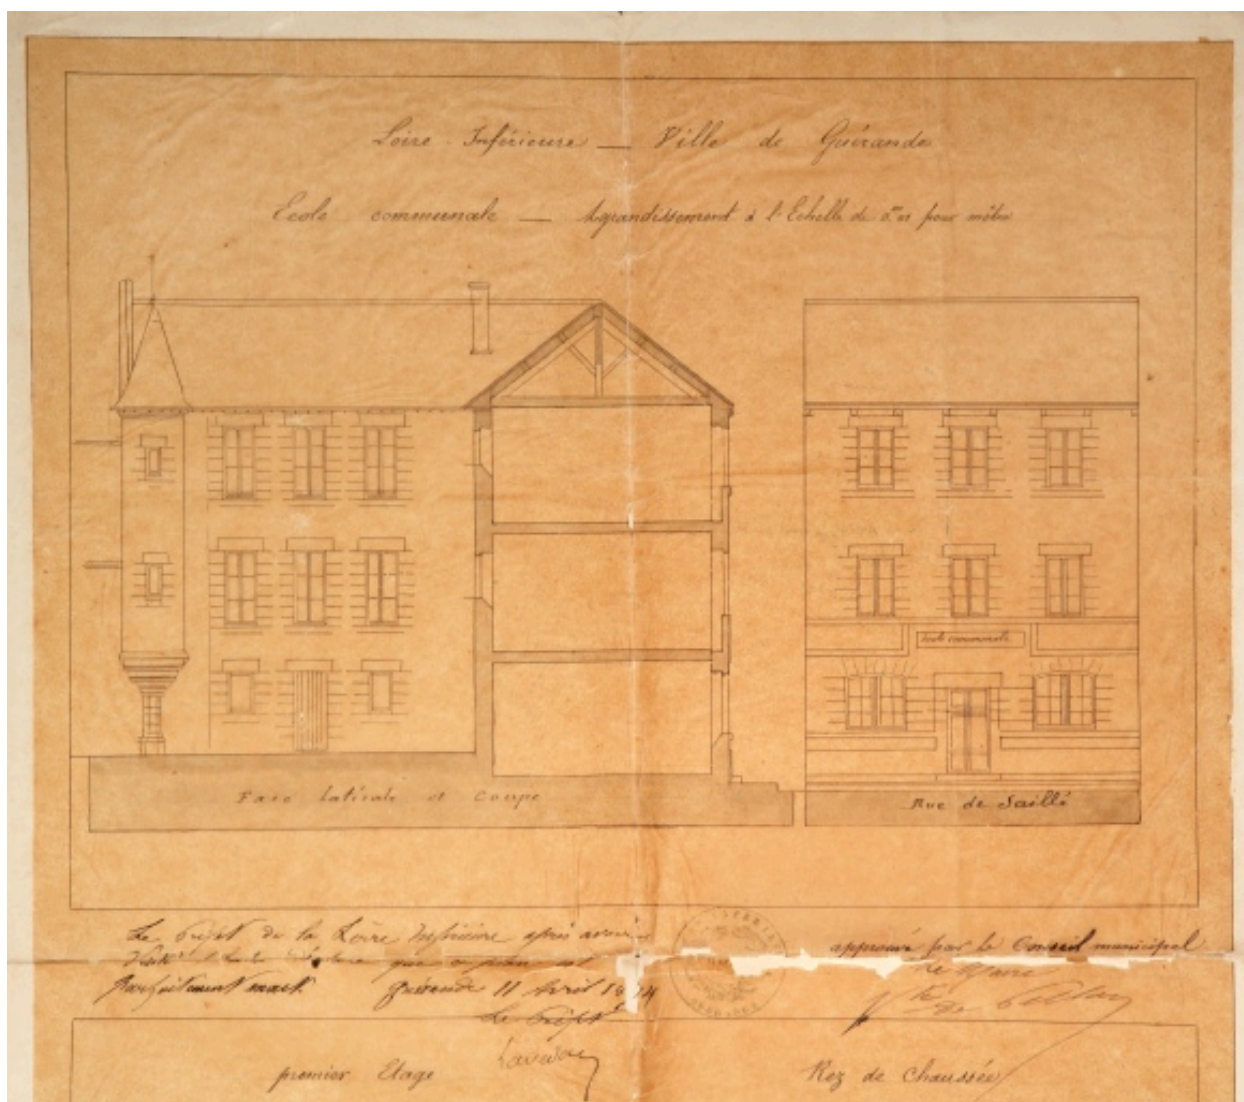 Loire-Inférieure — Ville de Guérande
Ecole communale — Agrandissement à l'Echelle de 0.m01 pour mètre
Ecole communale
Face latérale et Coupe
Rue de Saillé
Le Préfet de la Loire Inférieure après avoir
que
Guérande 11 Avril
Le Préfet
approuvé par le Conseil municipal
Le Maire
premier Etage
Rez de Chaussée